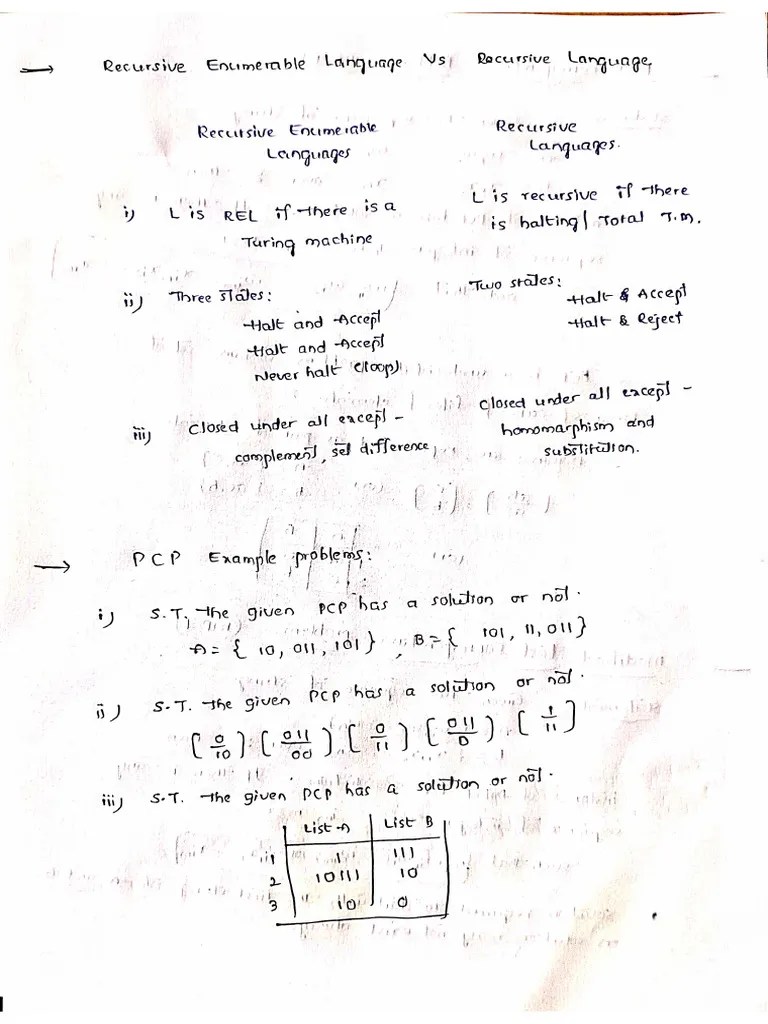 → Recursive Enumerable Language Vs Recursive Language
Recursive Enumerable Languages
Recursive Languages.
i) L is REL if there is a Turing machine
L is recursive if there is halting / Total T.M.
ii) Three states:
Halt and Accept
Halt and Accept
Never halt (loop)
Two states:
Halt & Accept
Halt & Reject
iii) Closed under all except -
complement, set difference
Closed under all except -
homomarphism and
substitution.
→ PCP Example problems:
i) S.T. the given PCP has a solution or not.
A = { 10, 011, 101 } , B = { 101, 11, 011 }
ii) S.T. the given PCP has a solution or not.
[ 0/10 ] , [ 011/00 ] , [ 0/11 ] , [ 011/0 ] , [ 1/11 ]
iii) S.T. the given PCP has a solution or not.
List A List B
1 1 111
2 10111 10
3 10 0